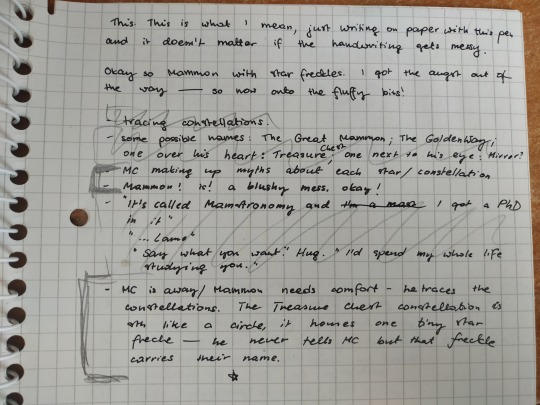 This. This is what I mean, just writing on paper with this pen
and it doesn't matter if the handwriting gets messy.
Okay so Mammon with star freckles. I got the angst out of
the way — so now onto the fluffy bits!
tracing constellations.
- some possible names: The Great Mammon; The GoldenWay;
one over his heart: Treasure Chest; one next to his eye: Mirror?
- MC making up myths about each star/constellation
- Mammon! is! a blushy mess. okay!
- "It's called Mamstronomy and I got a PhD
in it"
"... Lame"
"Say what you want." Hug. "I'd spend my whole life
studying you."
- MC is away/Mammon needs comfort - he traces the
constellations. The Treasure Chest constellation is
sth like a circle, it homes one tiny star
freckle — he never tells MC but that freckle
carries their name.
☆